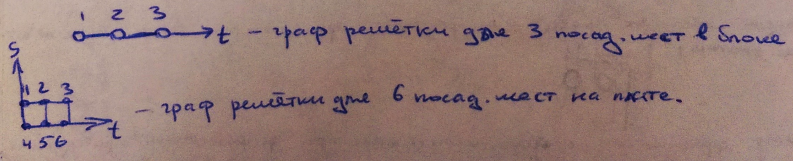 1 2 3
t – граф решётки для 3 посад. мест в блоке
S
1 2 3
– граф решётки для 6 посад. мест на плате.
t
4 5 6